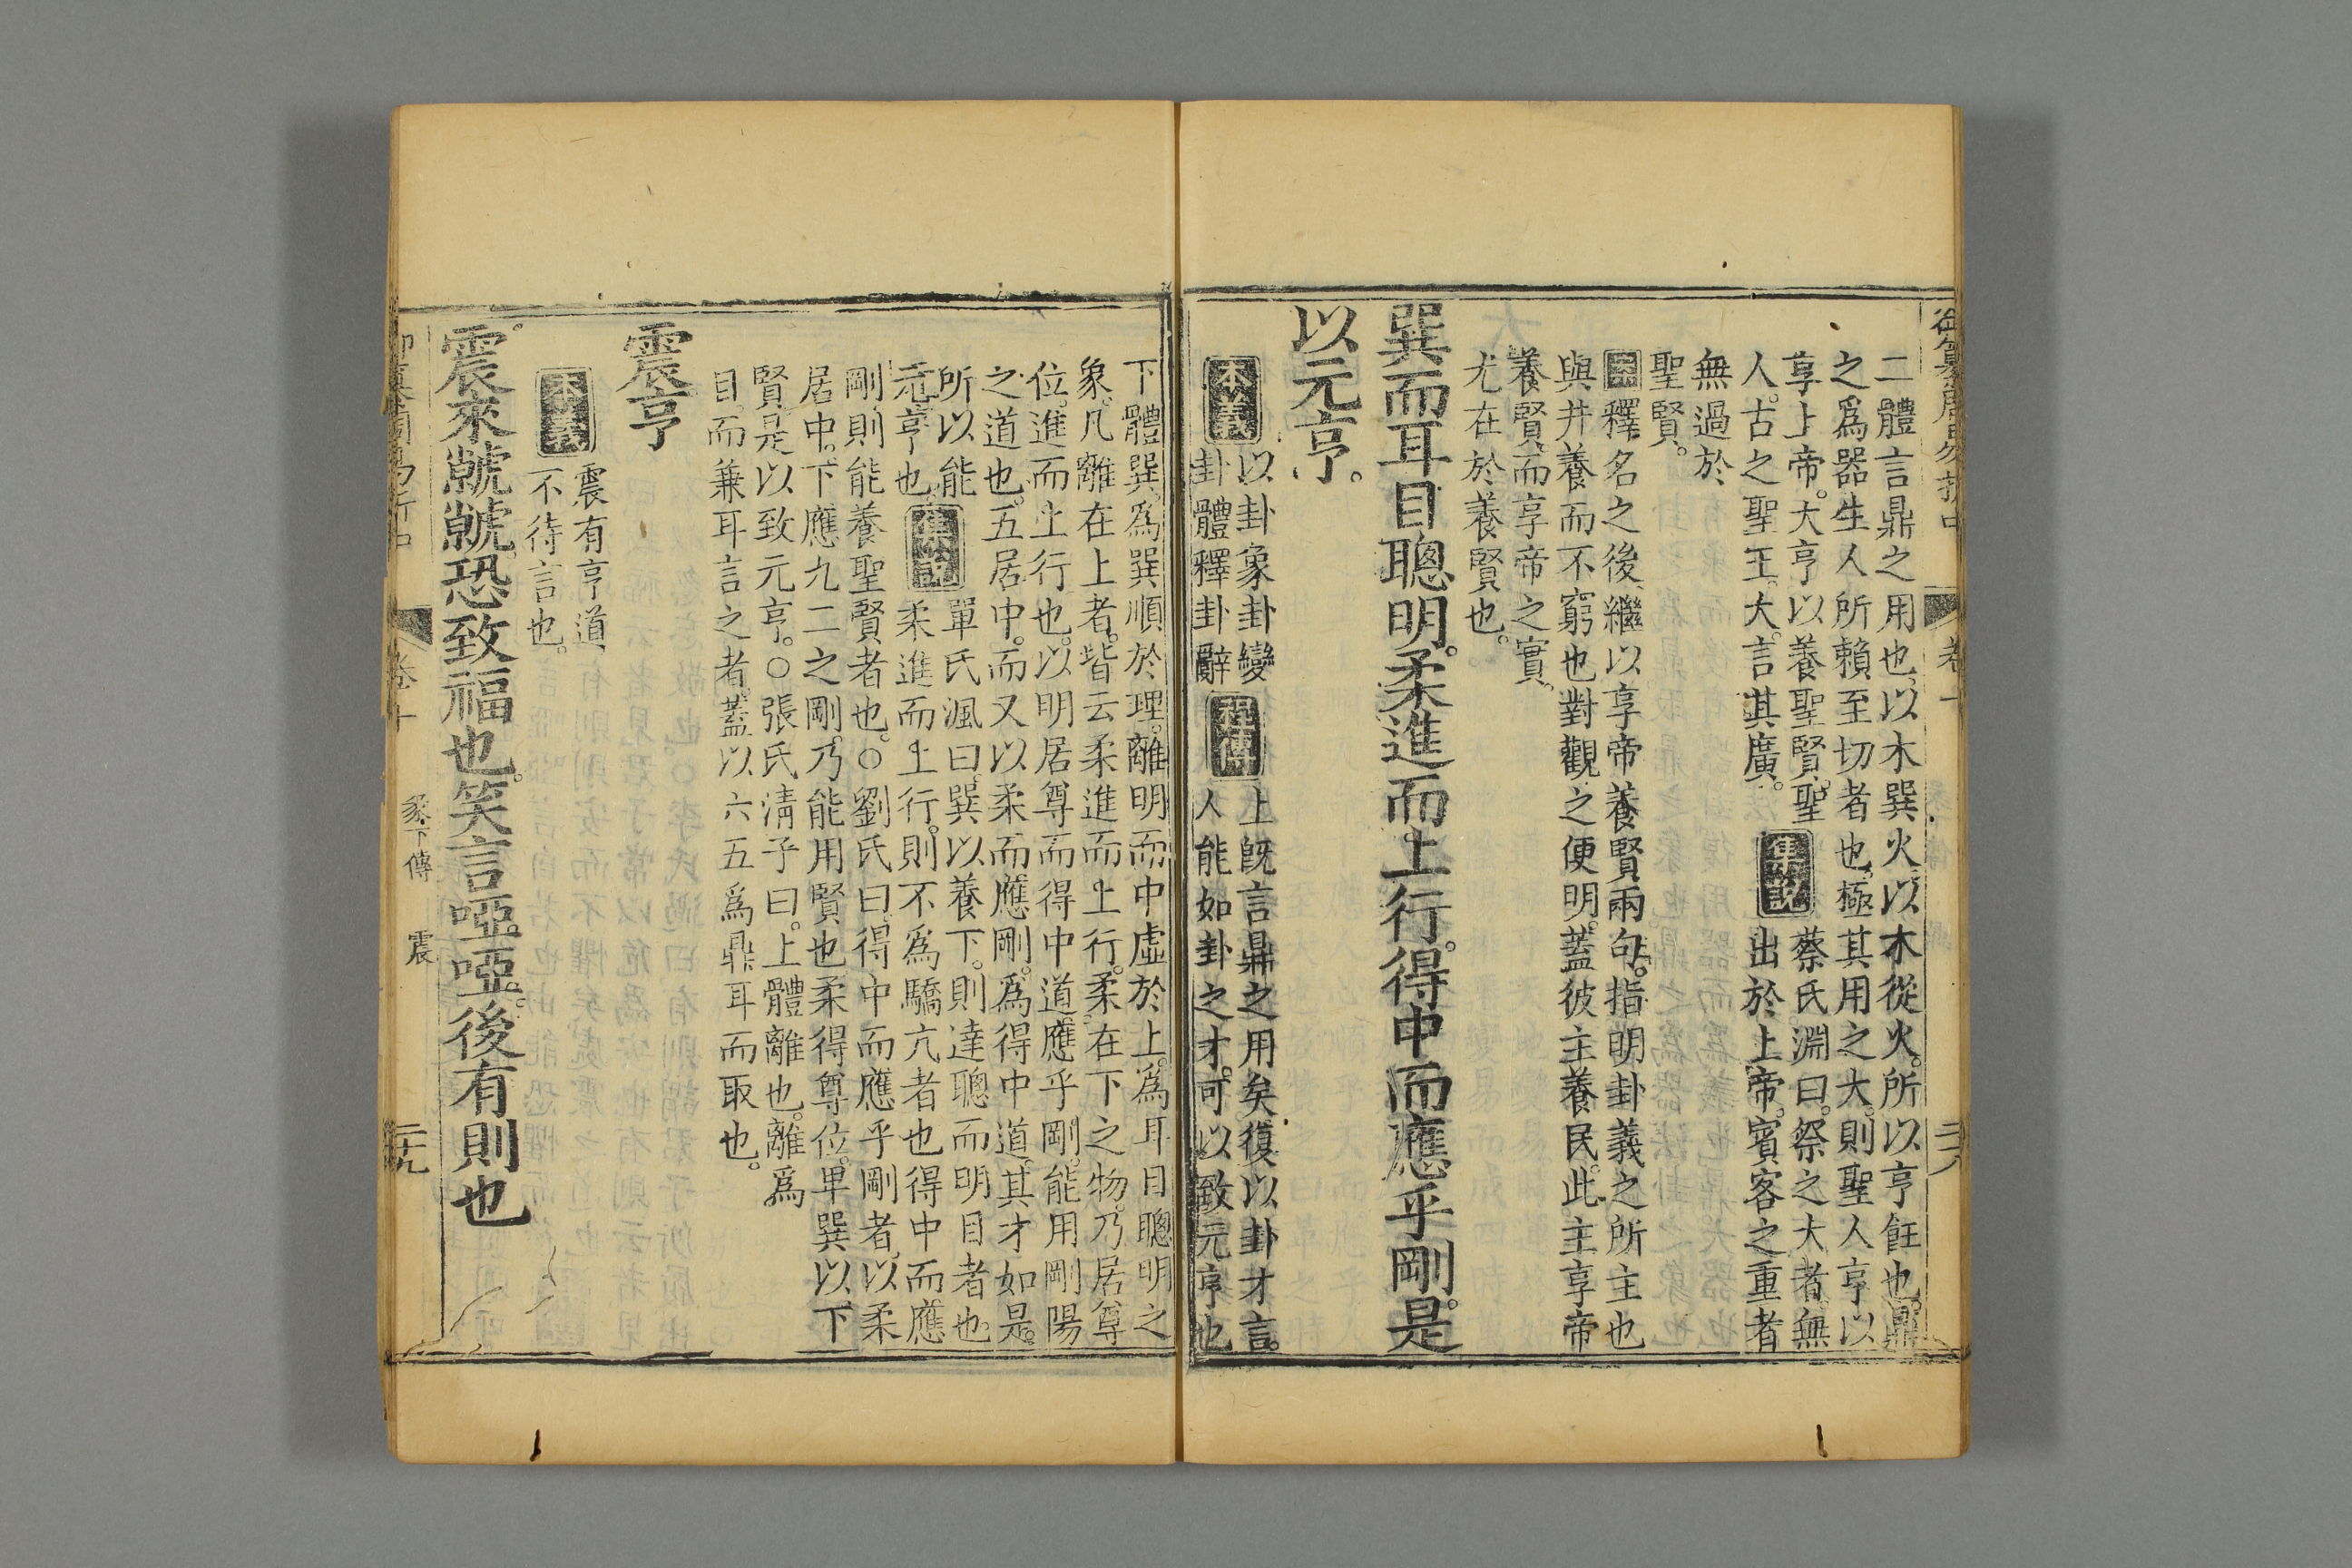 御纂周易折中 卷十
二體言鼎之用也。以木巽火。以木從火。所以亨飪也。鼎
之爲器。生人所賴至切者也。極其用之大。則聖人亨以
享上帝。大亨以養聖賢。聖
人。古之聖王。大。言其廣。
集說
蔡氏淵曰。祭之大者。無
出於上帝。賓客之重者
無過於
聖賢。
案 釋名之後。繼以享帝養賢兩句。指明卦義之所主也
與井養而不窮也對觀之便明。蓋彼主養民。此主享帝
養賢。而享帝之實。
尤在於養賢也。
巽而耳目聰明。柔進而上行。得中而應乎剛。是
以元亨。
本義
以卦象卦變
卦體釋卦辭
程傳
上旣言鼎之用矣。復以卦才言。
人能如卦之才。可以致元亨也
下體巽。爲巽順於理。離明而中虛於上。爲耳目聰明之
象。凡離在上者。皆云柔進而上行。柔在下之物。乃居尊
位。進而上行也。以明居尊而得中道。應乎剛。能用剛陽
之道也。五居中。而又以柔而應剛。爲得中道。其才如是。
所以能
元亨也。
集說
單氏渢曰。巽以養下。則達聰而明目者也。
柔進而上行。則不爲驕亢者也。得中而應
剛。則能養聖賢者也。○劉氏曰。得中而應乎剛者。以柔
居中。下應九二之剛。乃能用賢也。柔得尊位。卑巽以下
賢。是以致元亨。○張氏清子曰。上體離也。離爲
目。而兼耳言之者。蓋以六五爲鼎耳而取也。
震亨
本義
震有亨道
不待言也。
震來虩虩。恐致福也。笑言啞啞。後有則也
卷十 彖下傳 震 二十九